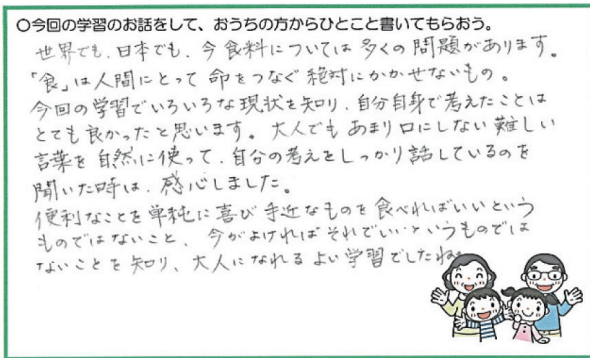 ○今回の学習のお話をして、おうちの方からひとこと書いてもらおう。
世界でも、日本でも、今食料については多くの問題があります。
「食」は人間にとって命をつなぐ絶対にかかせないもの。
今回の学習でいろいろな現状を知り、自分自身で考えたことは
とても良かったと思います。大人でもあまり口にしない難しい
言葉を自然に使って、自分の考えをしっかり話しているのを
聞いた時は、感心しました。
便利なことを単純に喜び手近なものを食べればいいという
ものではないこと、今がよければそれでいいというものでは
ないことを知り、大人になれるよい学習でしたね。